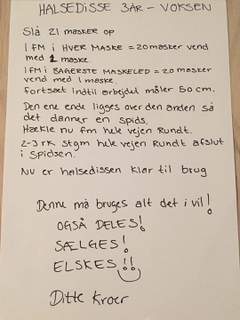 HALSEDISSE 3ÅR - VOKSEN
Slå 21 masker op
1 FM i HVER MASKE = 20 masker vend
med 1 maske.
1 FM i BAGERSTE MASKELED = 20 masker
vend med 1 maske.
fortsæt indtil arbejdet måler 50 cm.
Den ene ende ligges over den anden så
det danner en spids.
Hækle nu fm hele vejen rundt.
2-3 rk stgm hele vejen rundt afslut
i spidsen.
Nu er halsedissen klar til brug
Denne må bruges alt det i vil!
OGSÅ DELES!
SÆLGES!
ELSKES!!
Ditte Kroer